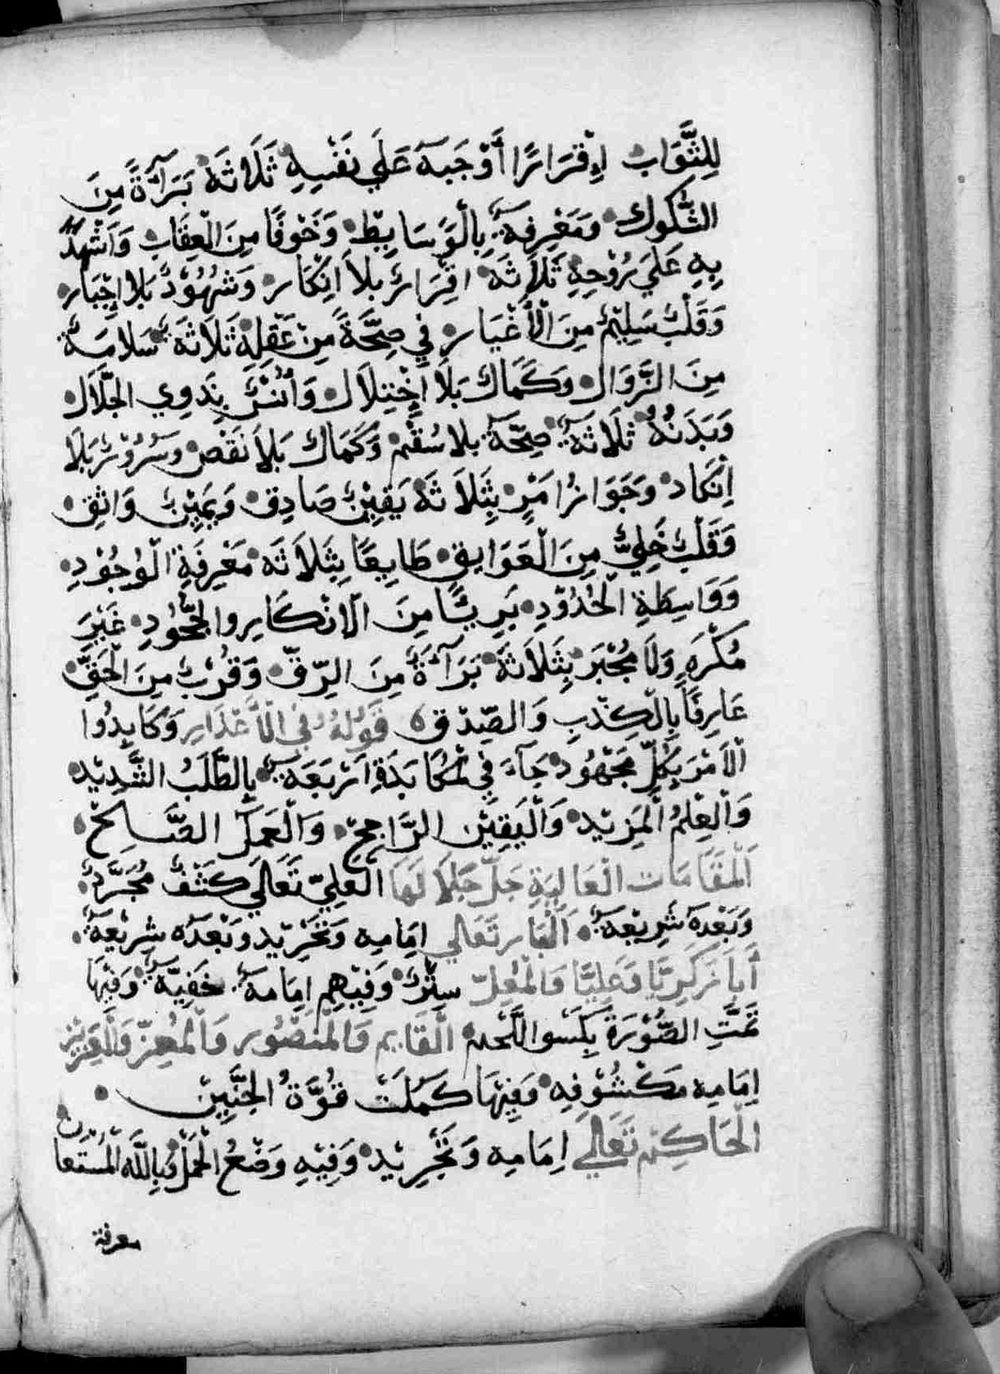 لِلثَّوَابِ إِقْرَارًا أَوْجَبَهُ عَلَى نَفْسِهِ ثَلَاثَةَ بَرَآءَةً مِنَ
الشُّكُوكِ وَمَعْرِفَةً بِالْوَسَايِطِ وَخَوْفًا مِنَ الْعِقَابِ وَاَشْهَدَ
بِهِ عَلَى رُوْحِهِ ثَلَاثَةَ اقْرَارٌ بَلَا اِنْكَارِ وَشُهُوْدٌ بَلا اِجْبَارِ
وَقَلْبٌ سَلِيْمٌ مِنَ الْأَغْيَارِ فِي صِحَّةً مِنْ عَقْلِهِ ثَلَاثَةَ سَلَامَةً
مِنَ الزَّوَالِ وَكَمَالٌ بَلَا اِخْتِلَالِ وَاُنْسٌ بِذَوِي الْجَلَالِ
وَبَدَنُهُ ثَلَاثَةً صِحَّةً بلا سُقْمٍ وَكَمَالٌ بَلَا نَقْصٍ وَسُرُوْرٌ بَلَا
اِنْكَادِ وَجَوَازَ اَمْرٍ بِثَلَاثَةَ يَقِيْنٌ صَادِقٌ وَيَمِيْنٌ وَاثِقٌ
وَقَلْبٌ خَلِيٌّ مِنَ الْعَوَايِقِ طَايِعًا بِثَلَاثَةَ مَعْرِفَةِ الْوُجُوْدِ
وَوَاسِطَةِ الْحُدُوْدِ بَرِيْئًا مِنَ الْاِنْكَارِ والْجُحُودِ غَيْرَ
مُكْرَهٍ وَلَا مُجْبَرٍ بِثَلَاثَةَ بَرَآءَةً مِنَ الرِّقِّ وَقُرْبٌ مِنَ الْحَقِّ
عَارِفًا بِالْكِذْبِ وَالصِّدْقِ قَوْلُهُ فِي الْأَعْذَارِ وَكَابِدُوا
الْاَمْرَ بِكُلِّ مَجْهُودٍ جَآءَ فِي الْمُكَابَدَةِ اَرْبَعَةً بِالطَّلَبُ الشَّدِيْدِ
وَالْعِلْمُ الْمَزِيْدِ وَالْيَقِيْنِ الرَّاجِحِ وَالْعَمَلُ الصَّالِحْ
اَلْمَقَامَات الْعَالِيَةِ جَلَّ جَلَالَهَا الْعَلِيّ تَعَالَى كَشْفٌ مُجَرَّدٌ
وَبَعْدَهُ شَرِيْعَةً اَلْبَار تَعَالَى اِمَامِه وَتَجْرِيْدِ وَبَعْدَهُ شَرِيْعَةً
اَبَا زَكَرِيَّا وَعَلِيَّا وَالْمُعِلّ سِتْرٌ وَفِيْهِمِ اِمَامة خَفِيَّةً وَفِيْهَا
تَمَّتِ الصُّوْرَةَ بِكَسْوِ اللَّحْمِ الْقَايِم وَالْمَنْصُوْر وَالْمُعِزّ وَالْعَزِيْز
اِمَامِه مَكْشُوْفِه وَفِيْهَا كَمُلَتْ قُوَّةُ الْجَنِيْنِ
الْحَاكِم تَعَالَى اِمَامِه وَتَجْرِيْدِ وَفِيْهِ وَضْعُ الْحَمْلُ وَبِاللَّهِ الْمُسْتَعَانُ
معرفة